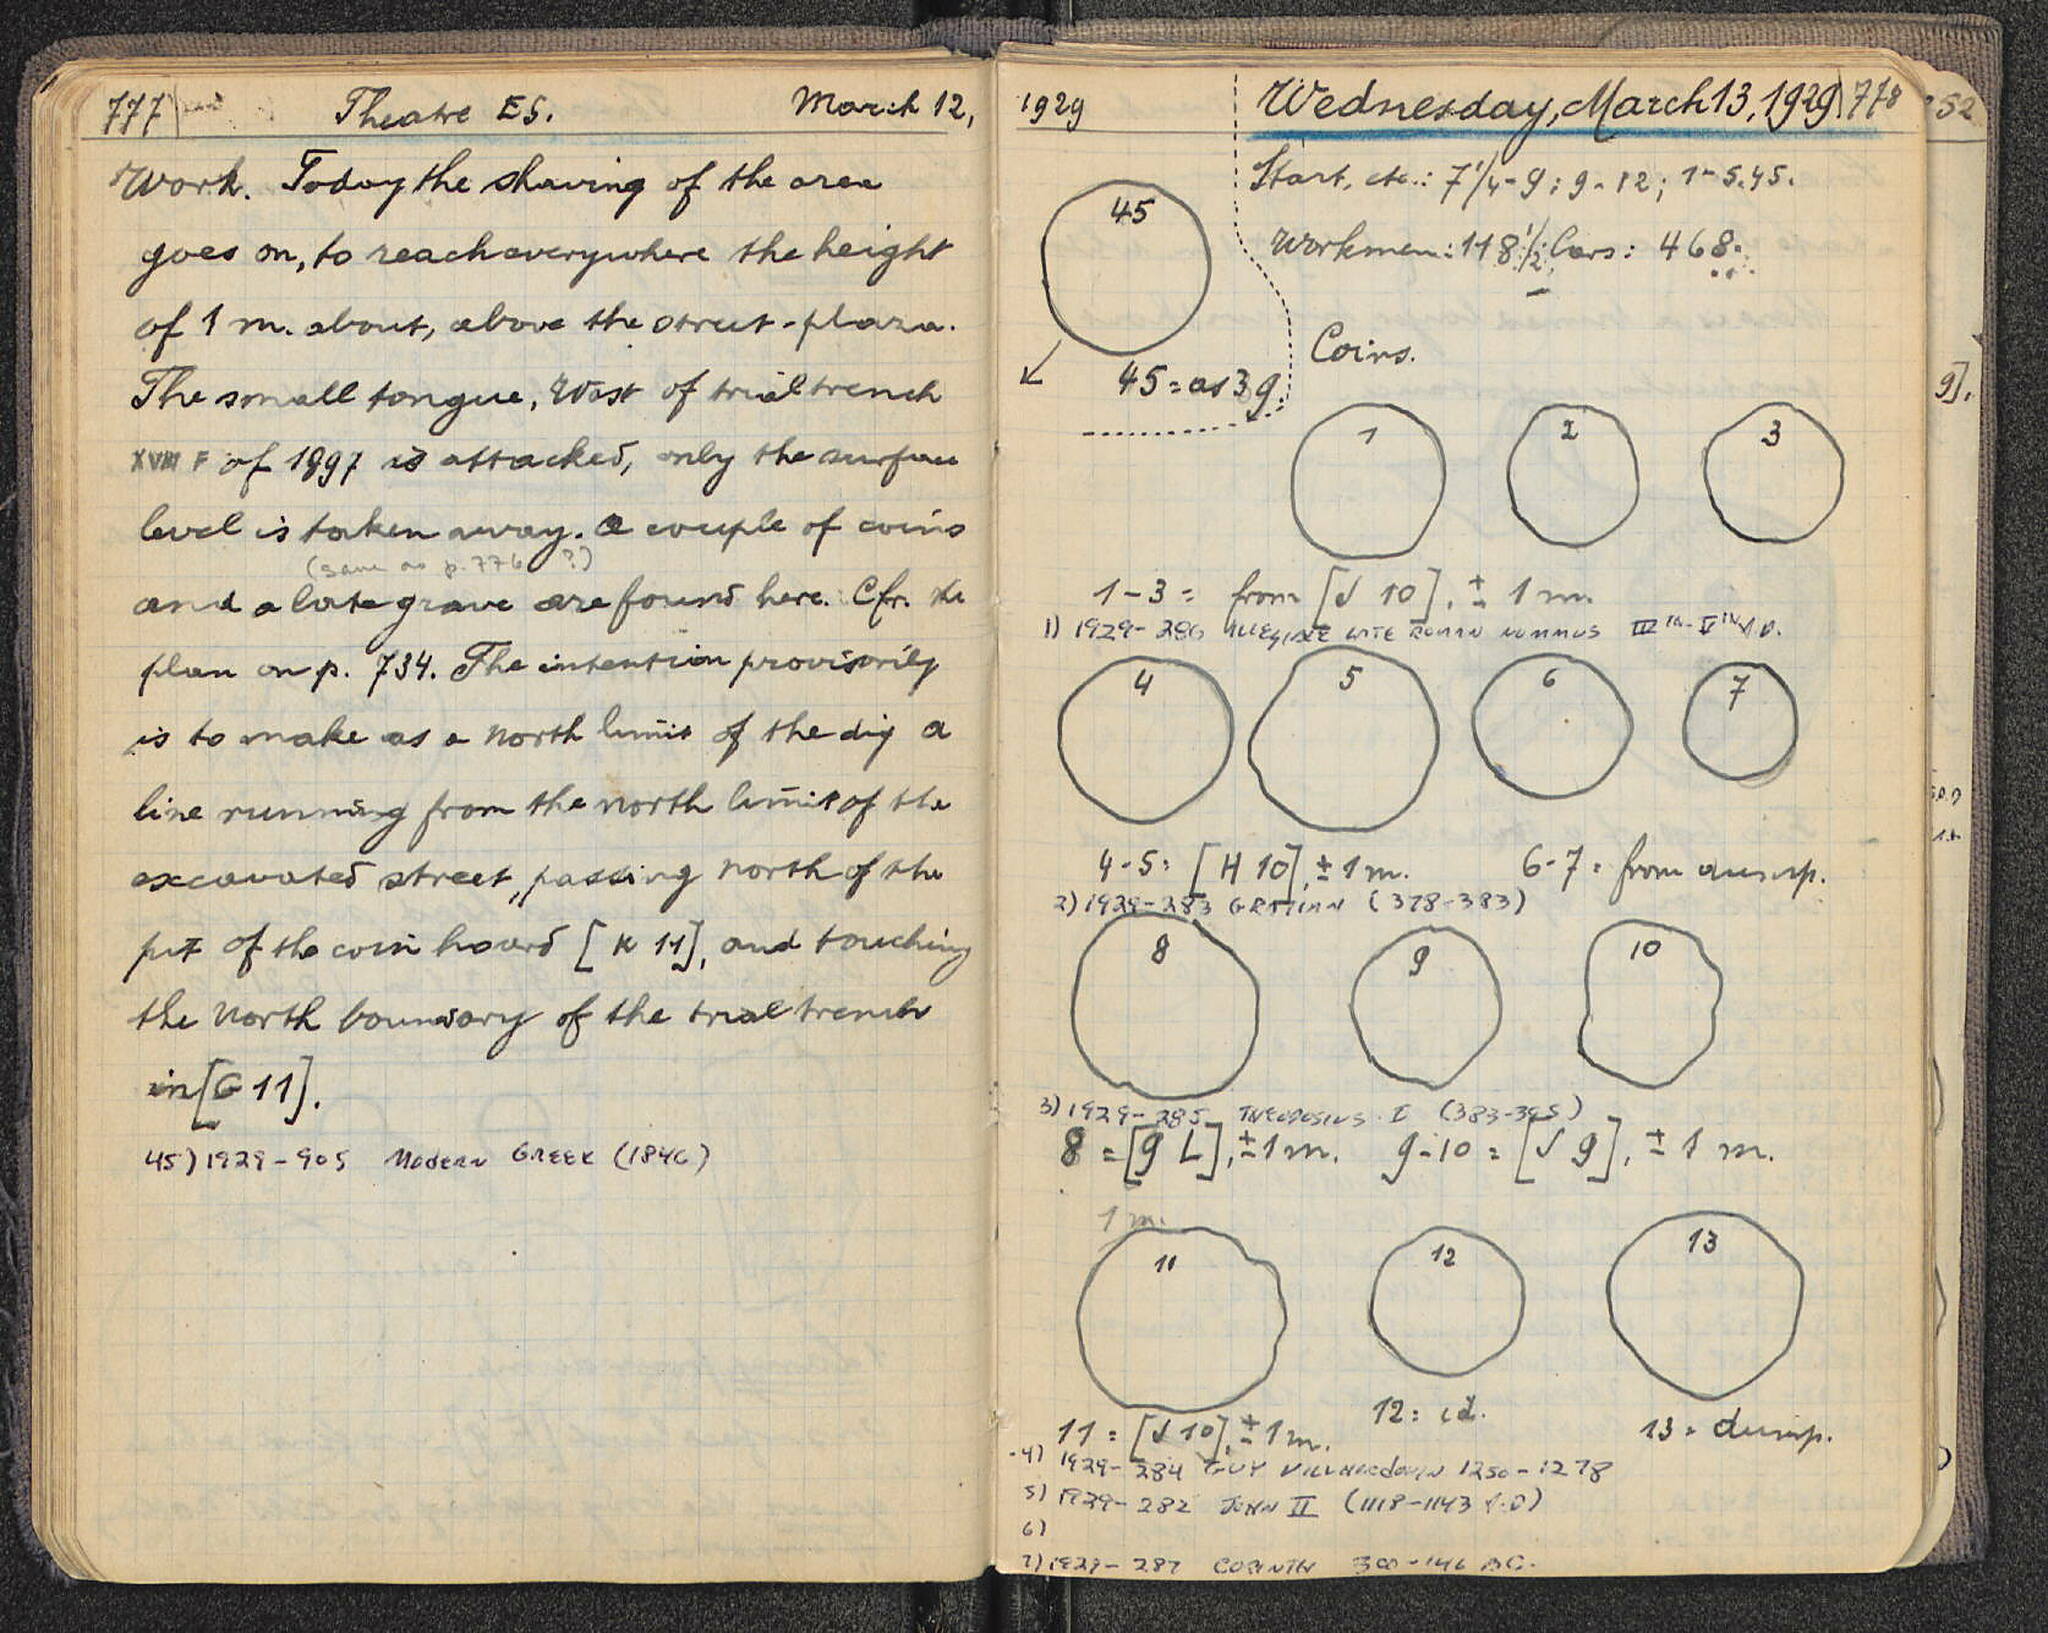 777 Theatre ES. March 12,
Work. Today the shaving of the area
goes on, to reach everywhere the height
of 1 m. about, above the street-plaza.
The small tongue, West of trial trench
XVIII F of 1897 is attacked, only the surface
level is taken away. A couple of coins
(same as p. 776 ?)
and a late grave are found here. Cfr. the
plan on p. 734. The intention provisorily
is to make as a north limit of the dig a
line running from the north limit of the
excavated street, passing north of the
pit of the coin hoard [K 11], and touching
the north boundary of the trial trench
in [G 11].
45) 1929-905 Modern Greek (1846)
1929
45
45 = as 39.
Wednesday, March 13, 1929 778
Start, etc.: 7 1/4 - 9; 9-12; 1-5.45.
Workmen: 118 1/2; Cars: 468.
Coins.
1 2 3
1-3 = from [J 10], ± 1 m.
1) 1929-286 ILLEGIBLE LATE ROMAN NUMMUS III - V A.D.
4 5 6 7
4-5 = [H 10], ± 1 m. 6-7 = from dump.
2) 1929-283 GRATIAN (378-383)
8 9 10
3) 1929-285 THEODOSIUS I (383-395)
8 = [9 L], ± 1 m. 9-10 = [J 9], ± 1 m.
1 m.
11 12 13
11 = [J 10], ± 1 m. 12 = id. 13 = dump.
4) 1929-284 GUY VILLHARDOUIN 1250-1278
5) 1929-282 JOHN II (1118-1143 A.D)
6)
7) 1929-287 CORINTH 300-146 BC.
52
9].